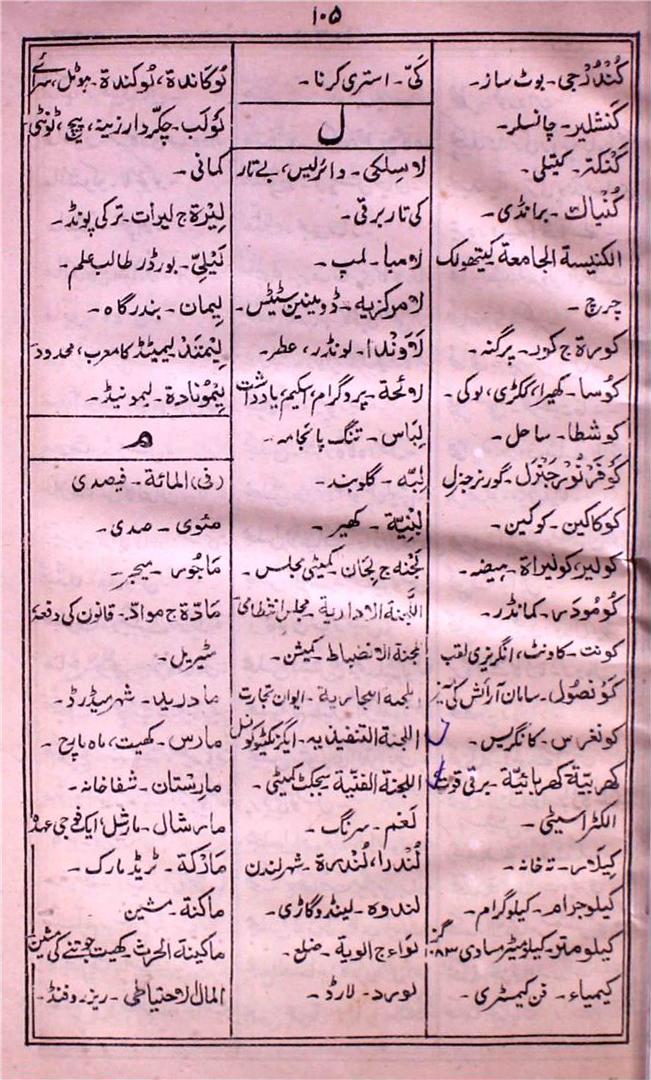 ۱۰۵
كُنْدُرْجی۔ بوٹ ساز۔
كَنشلیر۔ چانسلر۔
كَنْكَة۔ کیتلی۔
كُنْیاك۔ برانڈی۔
الكنیسة الجامعة کیتھولک
چرچ۔
كورة ج كور۔ پرگنہ۔
كوُسا۔ کھیرا، ککڑی، لوکی۔
كوشطا۔ ساحل۔
كَوُفَرْنُوْرْجَنْرَل۔ گورنر جنرل
كوكاكین۔ کوکین۔
كولیر، كولیراة۔ ہیضہ۔
كوُمُودَر۔ کمانڈر۔
كونت۔ کاونٹ، انگریزی لقب
كوُنْصُول۔ سامان آرائش کی میز
كونغرس۔ کانگریس۔
كهربیّة، كهربائیّة۔ برقی قوت،
الکٹراسیٹی۔
كیلار۔ تہ خانہ۔
كیلوجرام۔ کیلوگرام۔
كیلومتر۔ کیلومیٹر مساوی ۱۰۸۳ گز
كیمیاء۔ فن کیمسٹری۔
كَیّ۔ استری کرنا۔
ل
لاسِلكی۔ وائرلیس، بے تار
کی تار برقی۔
لامبا۔ لمپ۔
لامركزیه۔ ڈومینین سٹیٹس۔
لاوَنْدا۔ لونڈر، عطر۔
لائحة۔ پروگرام، اسکیم، یادداشت
لِبَاس۔ تنگ پائجامہ۔
لِبّه۔ گلوبند۔
لَبَنِیّة۔ کھیر۔
لَجْنه ج لِجَان۔ کمیٹی مجلس۔
اللَّجنة الاداریة۔ مجلس انتظامی
لجنة الانضباط۔ کمیشن۔
اللجنة التجاریة۔ ایوان تجارت
اللجنة التنفیذیه۔ ایگزیکٹیو کونسل
اللجنة الفنّیة سبجکٹ کمیٹی۔
لَغم۔ سرنگ۔
لُنْدرا، لُنْدرة۔ شہر لندن
لندوه۔ لینڈوگاڑی۔
لواء ج الویة۔ ضلع۔
لورد۔ لارڈ۔
لُوكَاندة، لُوكندة۔ ہوٹل، سرائے
لَوُلَب۔ چکردار زینہ، پیچ، ٹونٹی،
کمانی۔
لِیْرَة ج لیرات۔ ترکی پونڈ۔
لَیْلِیّ۔ بورڈر طالب علم۔
لِیمان۔ بندرگاہ۔
لِیْمتَدْ لیمیٹڈ کا معرب، محدود
لِیْمُونَادة۔ لیمونیڈ۔
م
(فی) المائة۔ فیصدی
مئوی۔ صدی۔
مَاجُور۔ میجر۔
مَادّة ج موادّ۔ قانون کی دفعہ،
مٹیریل۔
مادرید۔ شہر میڈرڈ۔
مارس۔ کھیت، ماہ مارچ۔
مارِستان۔ شفاخانہ۔
مارشال۔ مارشل، ایک فوجی عہدہ
مَارْكَة۔ ٹریڈ مارک۔
ماكنة۔ مشین
ماكینة الحرث۔ کھیت جوتنے کی مشین
المال الاحتیاطی۔ ریزروفنڈ۔